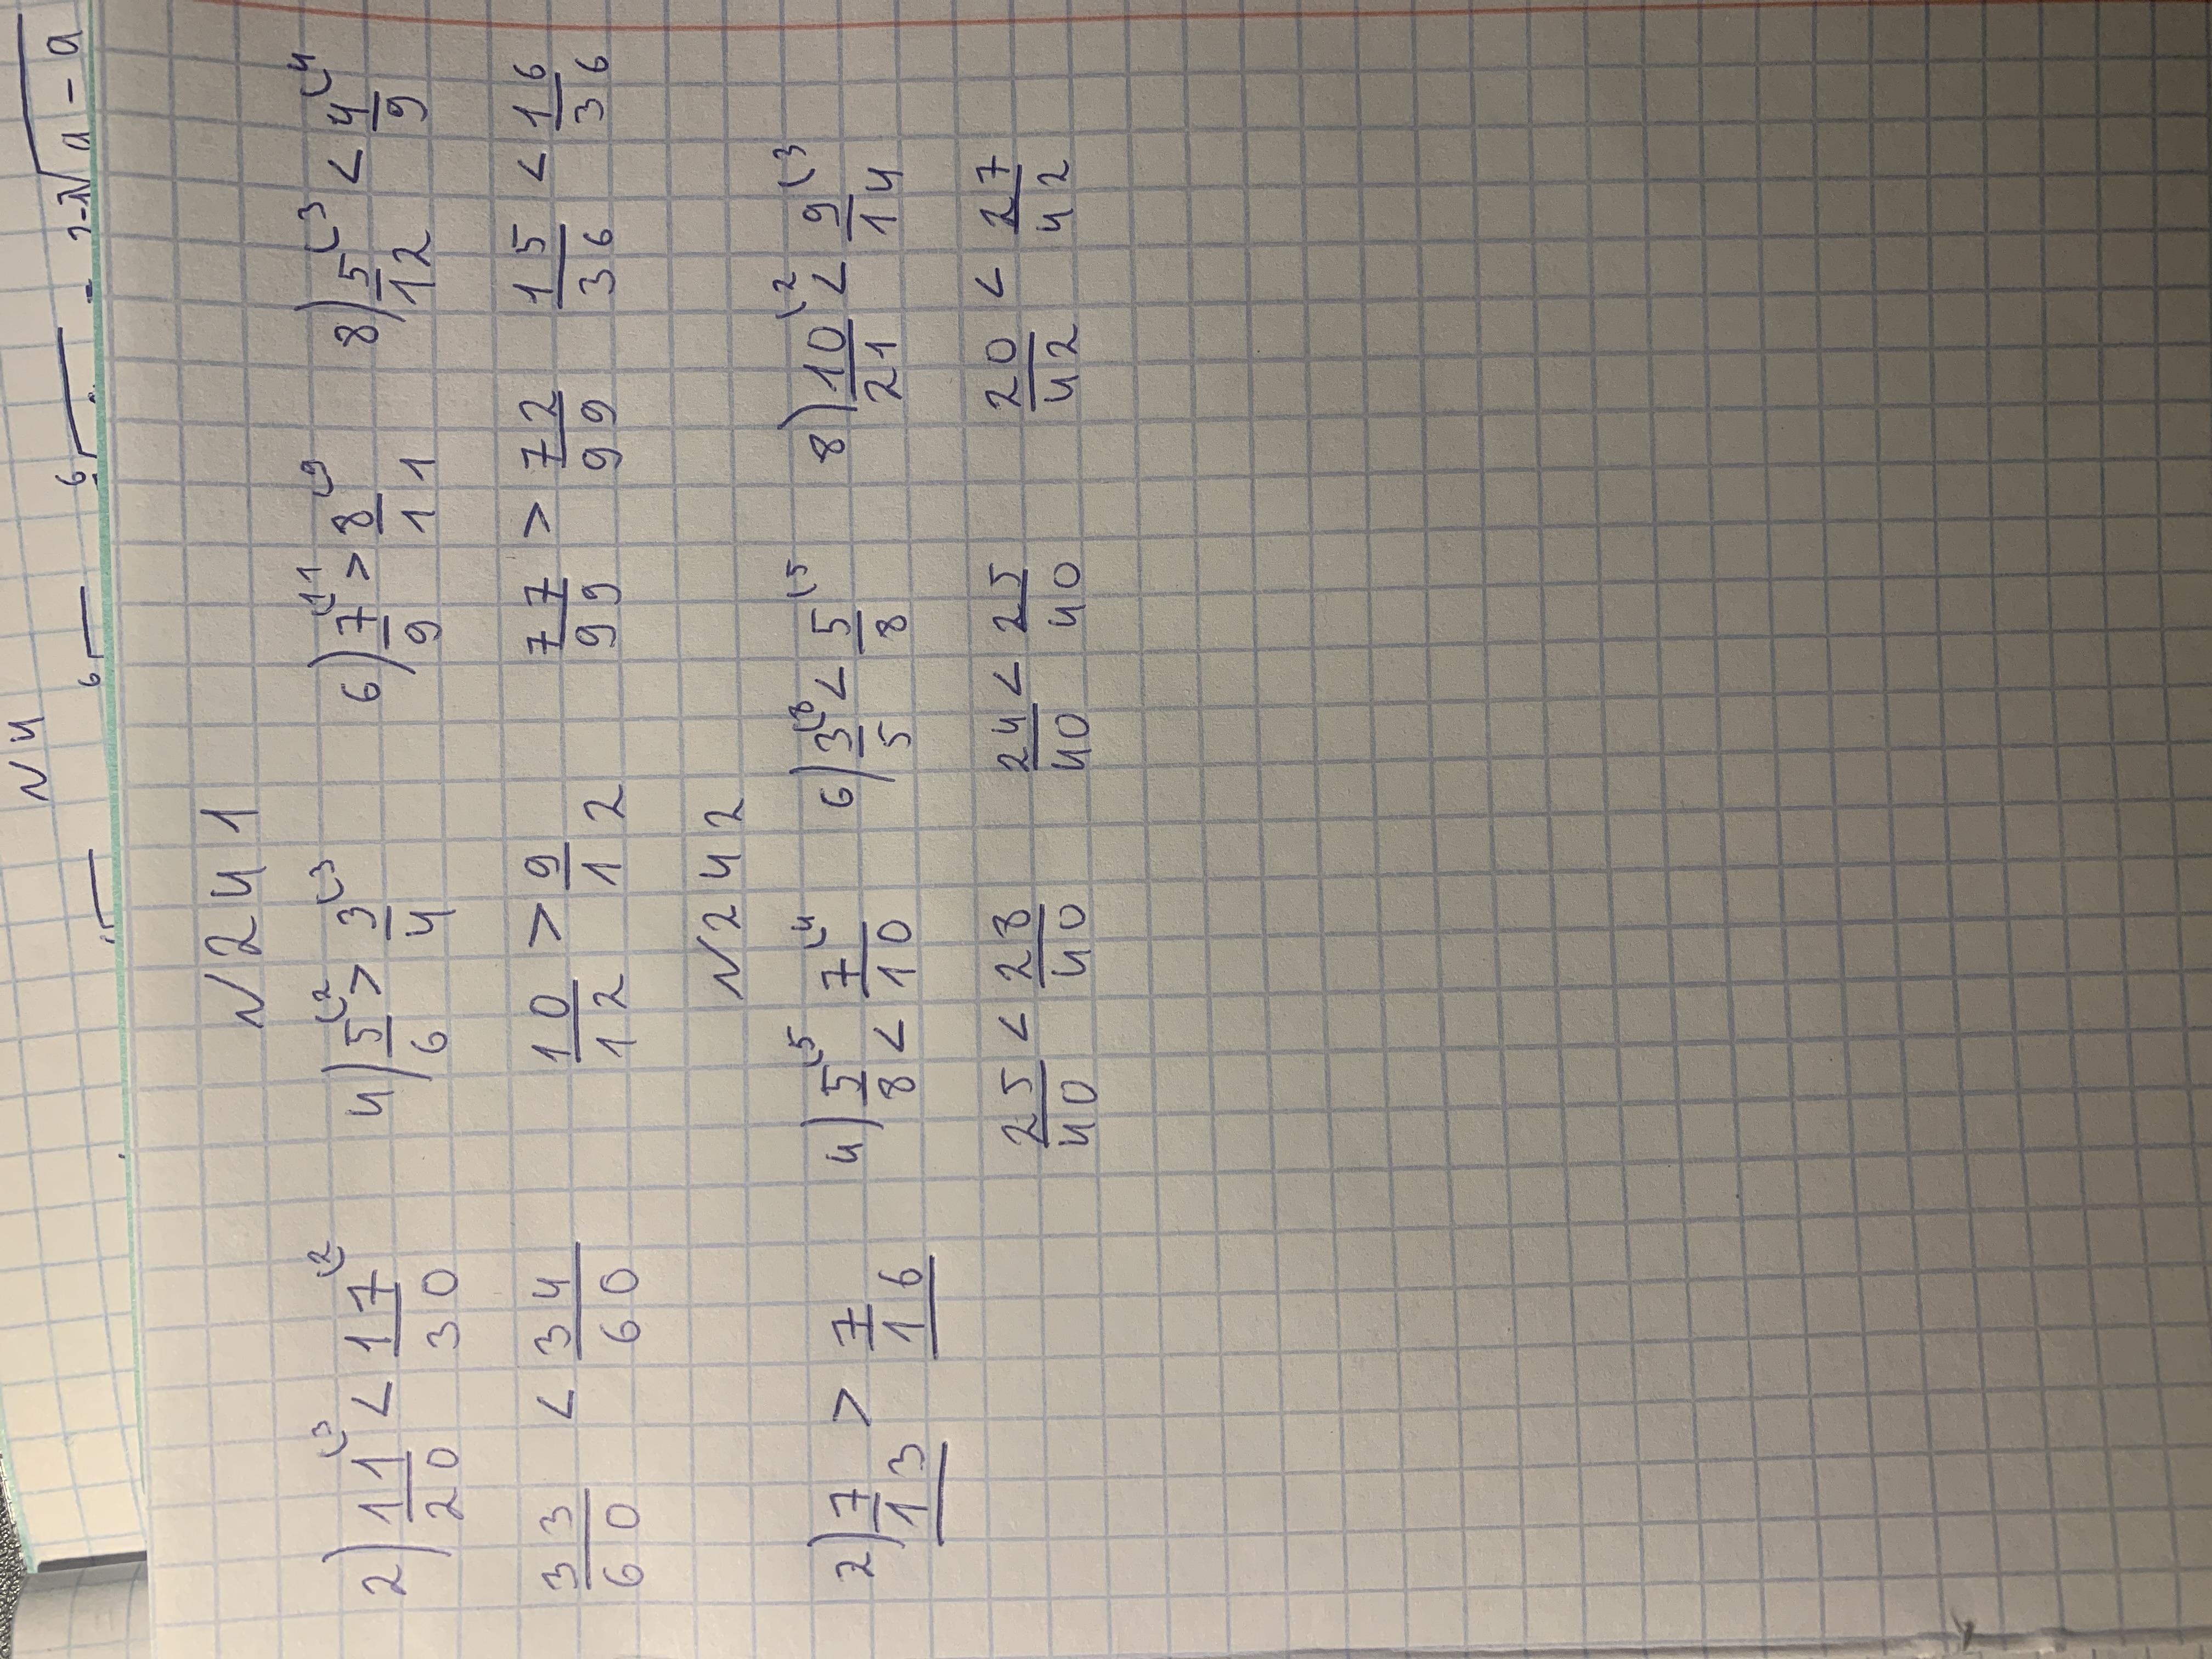 N 4
N 241
2) 11/20 (3 < 17/30 (2 4) 5/6 (2 > 3/4 (3 6) 7/9 (11 > 8/11 (9 8) 5/12 (3 < 4/9 (4
33/60 < 34/60 10/12 > 9/12 77/99 > 72/99 15/36 < 16/36
N 242
2) 7/13 > 7/16 4) 5/8 (5 < 7/10 (4 6) 3/5 (8 < 5/8 (5 8) 10/21 (2 < 9/14 (3
25/40 < 28/40 24/40 < 25/40 20/42 < 27/42